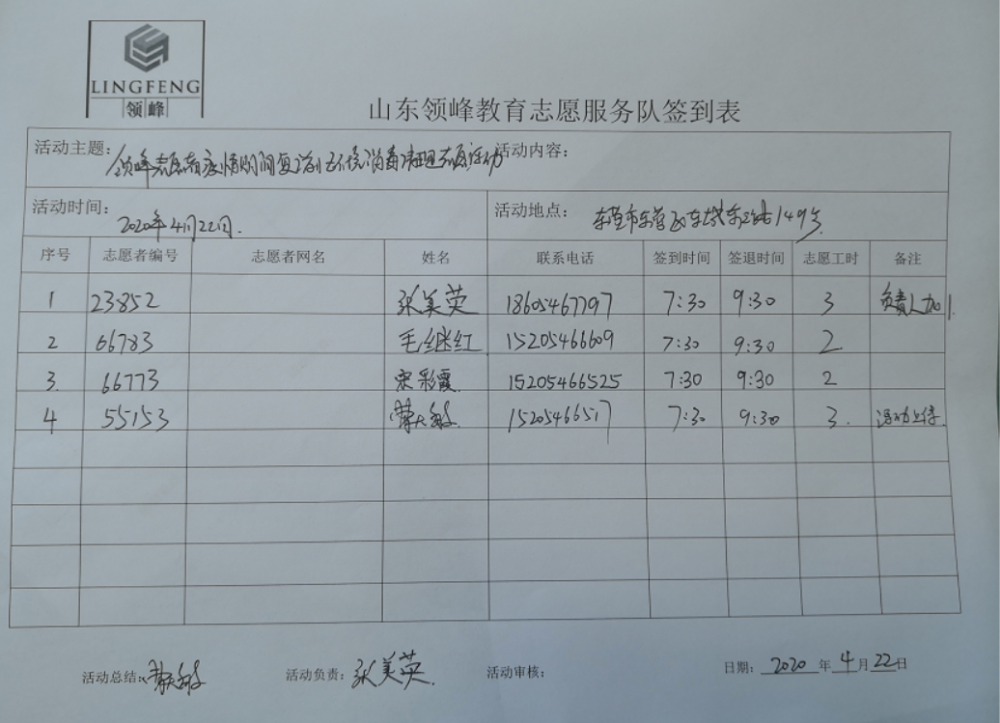 LINGFENG
领峰
山东领峰教育志愿服务队签到表
活动主题: 领峰志愿者疫情期间复 环境消毒 志愿活动 活动内容:
活动时间: 2020年4月22日. 活动地点: 东营市东营区东城东 149号
序号 志愿者编号 志愿者网名 姓名 联系电话 签到时间 签退时间 志愿工时 备注
1 23852 张美英 18605467797 7:30 9:30 3 负责人加1
2 66783 毛继红 15205466609 7:30 9:30 2
3. 66773 宋彩霞 15205466525 7:30 9:30 2
4 55153 15205466517 7:30 9:30 3. 活动上传
活动总结: 活动负责: 张美英 活动审核: 日期: 2020 年 4 月 22 日